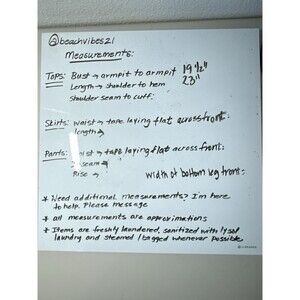 @beachvibes21
Measurements:
Tops: Bust → armpit to armpit 19 1/2"
Length → shoulder to hem 23"
Shoulder seam to cuff:
Skirts: waist → tape laying flat across front:
length →
Pants: waist → tape laying flat across front:
Inseam →
Rise → width of bottom leg front:
* Need additional measurements? I'm here
to help. Please message
* all measurements are approximations
* Items are freshly laundered, sanitized with lysol
laundry and steamed / bagged whenever possible